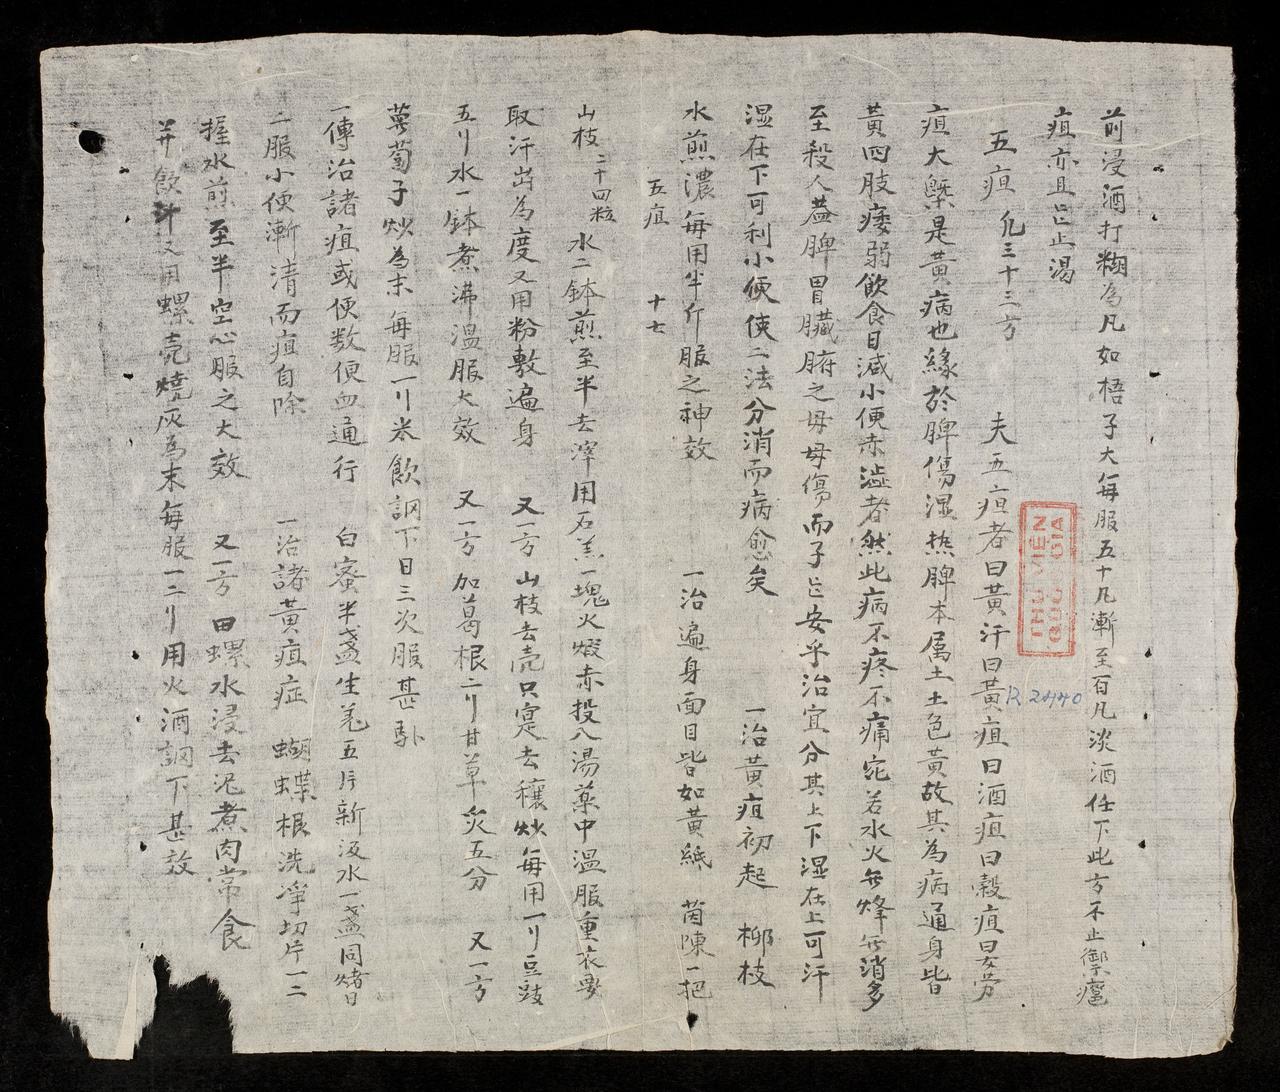 前浸酒打糊為凡如梧子大每服五十凡漸至百凡淡酒任下此方不止禦癰
疽亦且㠯止渴
五疸 凢三十三方
夫五疸者曰黃汗曰黃疸曰酒疸曰穀疸曰女劳
疸大槩是黃病也緣於脾傷湿热脾本属土土色黃故其為病通身皆
黃四肢痿弱飲食日減小便赤澁者然此病不疼不痛宛若水火無烽無消多
至殺人蓋脾胃臟腑之母母傷而子㠯安乎治宜分其上下湿在上可汗
湿在下可利小便使二法分消而病愈矣 一治黃疸初起 柳枝
水煎濃每用半斤服之神效 一治遍身面目皆如黃紙 茵陳一把
五疸 十七
山枝二十四粒水二鉢煎至半去滓用石羔一塊火煅赤投入湯藥中溫服重衣要
取汗岀為度又用粉敷遍身 又一方 山枝去壳只寔去穰炒每用一刂豆豉
五刂水一鉢煮沸溫服大效 又一方 加葛根二刂甘草炙五分 又一方
蔔子炒為末每服一刂米飲調下日三次服甚
一傳治諸疸或便数便血通行 白蜜半盞生羗五片新汲水一盞同煑日
二服小便漸清而疸自除 一治諸黃疸症 蝴蝶根洗淨切片一二
握水煎至半空心服之大效 又一方 田螺水浸去泥煮肉常食
并飲汁又用螺壳燒灰為末每服一二刂用火酒調下甚效
THƯ VIỆN
QUỐC GIA
R 2440